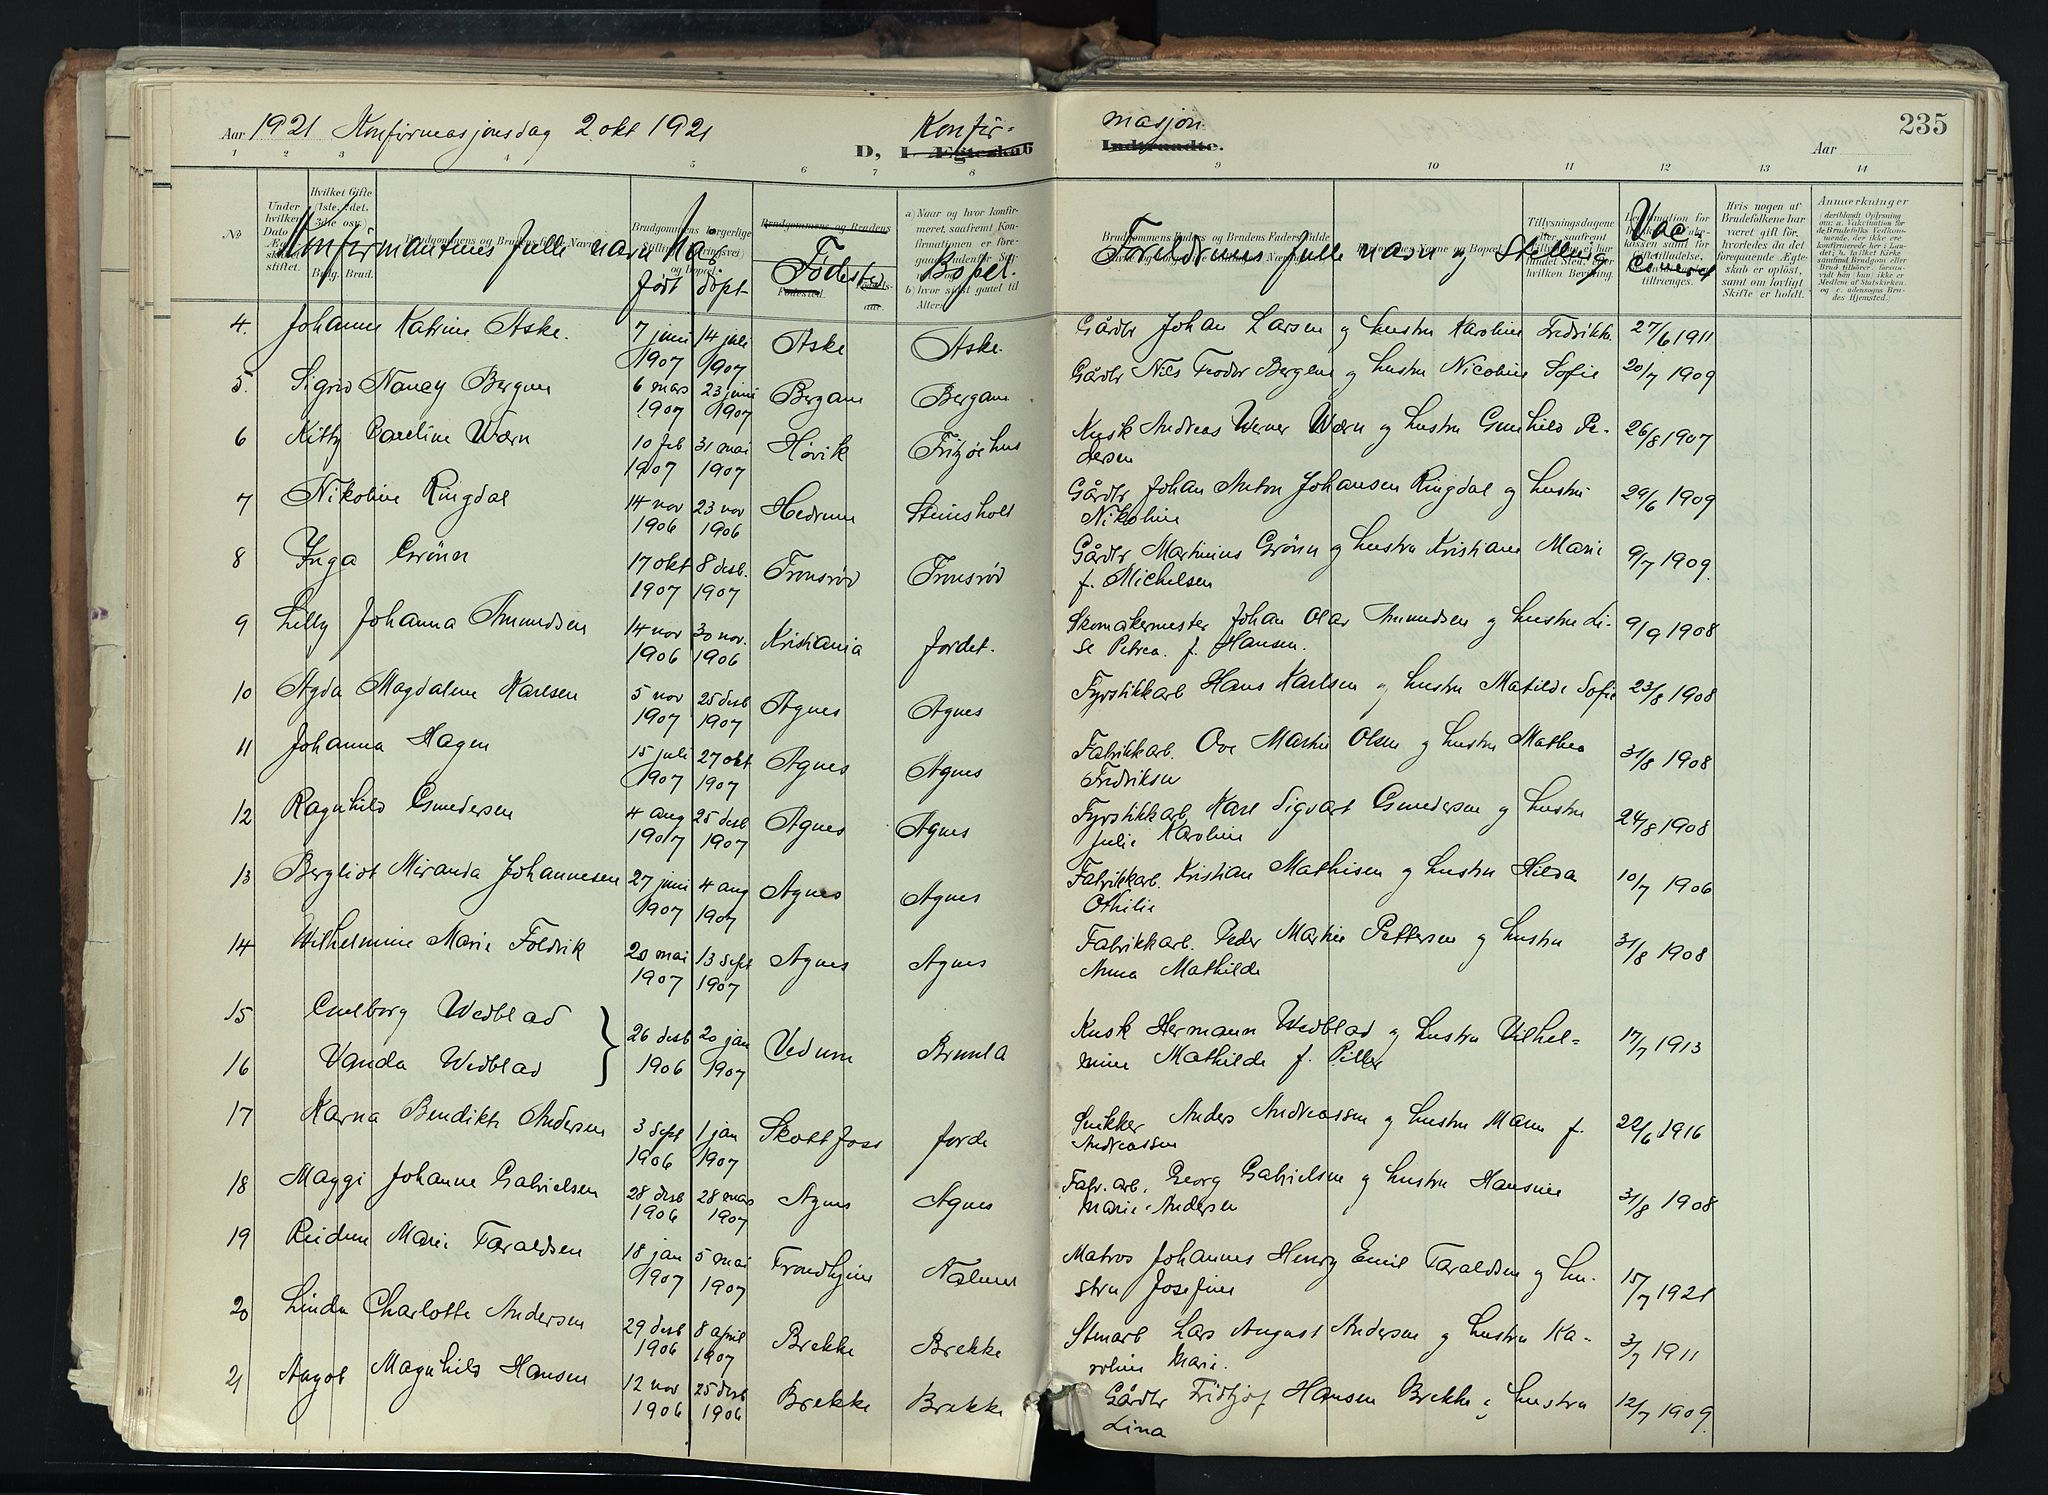 Aar 1921 Konfirmasjonsdag 2. okt 1921 Konfir=
masjon 235
D, I. Ægteskab Indtraadte. Aar
1 2 3 4 5 6 7 8 9 10 11 12 13 14
No. Konfirmantenes fulle navn Født døpt Fødested Bopel. Foreldrenes fulle navn og stilling Vac
4. Johanne Katrine Aske. 7 juni 1907 14 juli 1907 Aske Aske. Gårdbr Johan Larsen og hustru Karoline Fredrikke 27/6 1911
5. Sigrid Nancy Bergene 6 mars 1907 23 juni 1907 Bergene Bergene Gårdbr Nils Teodor Bergene og hustru Nicoline Sofie 20/7 1909
6 Kitty Caroline Wærn 10 feb 1907 31 mai 1907 Høvik Fritzøehus Kusk Andreas Werner Wærn og hustru Gunhild Pe-
dersen 26/8 1907
7 Nikoline Ringdal 14 nov 1906 23 nov 1906 Hedrum Steinsholt Gårdbr Johan Anton Johansen Ringdal og hustru
Nikoline 29/6 1909
8 Inga Grönn 17 okt 1907 8 desb. 1907 Tronsrød Tronsrød Gårdbr Martinius Grönn og hustru Kristiane Marie
f. Michelsen 9/7 1909.
9 Lilly Johanna Amundsen 14 nov 1906 30 nov. 1906 Kristiania Jordet. Skomakermester Johan Olav Amundsen og hustru Li-
se Petrea f. Hansen. 9/9 1908
10 Agda Magdalene Karlsen 5 nov 1907 25 desb 1907 Agnes Agnes Fyrstikkarb Hans Karlsen og hustru Matilde Sofie 23/8 1908
11 Johanna Hagen 15 juli 1907 27 okt 1907 Agnes Agnes Fabrikkarb. Ove Martin Olsen og hustru Mathea
Fredriksen 31/8 1908
12 Ragnhild Gundersen 4 aug 1907 25 desb 1907 Agnes Agnes Fyrstikkarb Karl Sigvart Gundersen og hustru
Julie Karoline 24/8 1908
13 Bergliot Miranda Johannesen 27 juni 1907 4 aug 1907 Agnes Agnes Fabrikkarb. Kristian Mathisen og hustru Hilda
Othilie 10/7 1906
14 Wilhelmine Marie Foldvik 20 mai 1907 13 sept 1907 Agnes Agnes Fabrikkarb. Peder Martin Pettersen og hustru
Anna Mathilde 31/8 1908
15 Gudborg Wedblad
16 Vanda Wedblad 26 desb 1906 20 jan 1907 Vedum Brunla Kusk Hermann Wedblad og hustru Vilhel=
mine Mathilde f. Piller 17/7 1913
17 Karna Bendikte Andersen 3 sept 1906 1 jan 1907 Skottfoss Jorde Snikker Anders Andreassen og hustru Maren f.
Andreassen 22/6 1916
18 Maggi Johanne Gabrielsen 28 desb 1906 28 mars 1907 Agnes Agnes Fabr. arb. Georg Gabrielsen og hustru Hansine
Marie Andersen 31/8 1908
19 Reidun Marie Taraldsen 18 jan 1907 5 mai 1907 Trondhjem Nalum Matros Johannes Henry Emil Taraldsen og hu-
stru Josefine 15/7 1921
20 Linda Charlotte Andersen 29 desb 1906 8 april 1907 Brekke Brekke Stenarb Lars August Andersen og hustru Ka-
roline Marie. 3/7 1911
21 Aagot Magnhild Hansen 12 nov 1906 25 desb 1906 Brekke Brekke Gårdbr Fridtjof Hansen Brekke og hustru
Lina 12/7 1909.